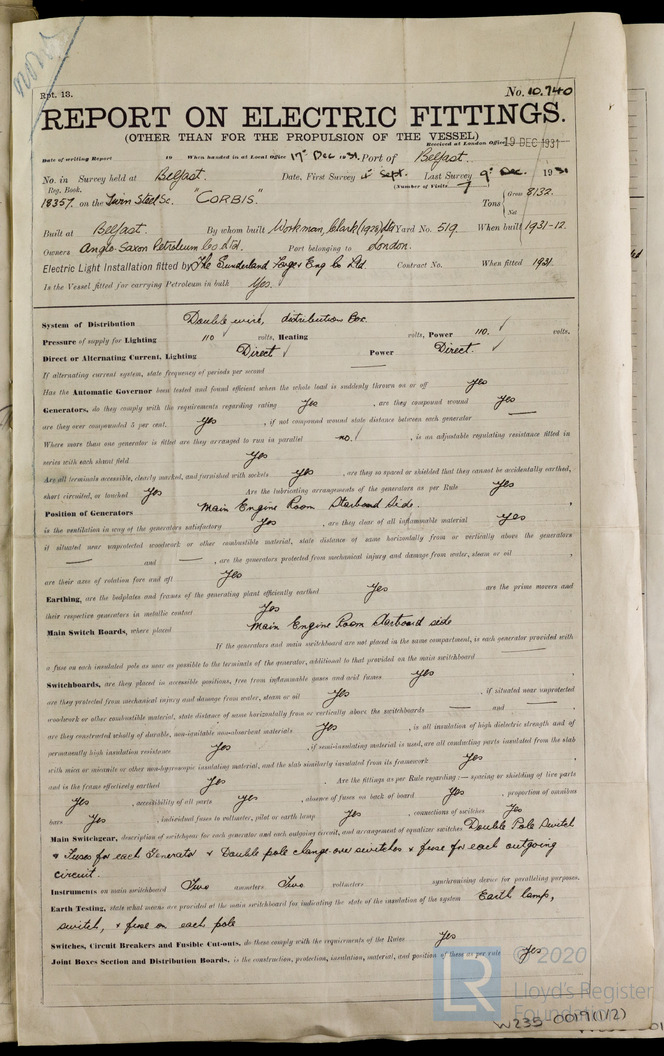 Rpt. 13.
No. 10.740
REPORT ON ELECTRIC FITTINGS.
(OTHER THAN FOR THE PROPULSION OF THE VESSEL)
Received at London Office 19 DEC 1931
Date of writing Report 19 When handed in at Local Office 17th Dec 1931. Port of Belfast.
No. in Survey held at Belfast. Date, First Survey Sept. Last Survey 9th Dec. 1931
Reg. Book. (Number of Visits 7
18357. on the Twin Steel Sc. "CORBIS." Tons Gross 8132.
Net
Built at Belfast. By whom built Workman, Clark (1928) Ltd Yard No. 519. When built 1931-12.
Owners Anglo-Saxon Petroleum Co Ltd. Port belonging to London.
Electric Light Installation fitted by The Sunderland Forge & Eng Co Ltd. Contract No. When fitted 1931.
Is the Vessel fitted for carrying Petroleum in bulk Yes.
System of Distribution Double wire, distribution Box.
Pressure of supply for Lighting 110 volts, Heating volts, Power 110. volts.
Direct or Alternating Current, Lighting Direct Power Direct.
If alternating current system, state frequency of periods per second
Has the Automatic Governor been tested and found efficient when the whole load is suddenly thrown on or off Yes
Generators, do they comply with the requirements regarding rating Yes, are they compound wound Yes
are they over compounded 5 per cent. Yes, if not compound wound state distance between each generator —
Where more than one generator is fitted are they arranged to run in parallel no., is an adjustable regulating resistance fitted in
series with each shunt field Yes
Are all terminals accessible, clearly marked, and furnished with sockets Yes, are they so spaced or shielded that they cannot be accidentally earthed,
short circuited, or touched Yes Are the lubricating arrangements of the generators as per Rule Yes
Position of Generators Main Engine Room Starboard Side.
is the ventilation in way of the generators satisfactory Yes, are they clear of all inflammable material Yes
if situated near unprotected woodwork or other combustible material, state distance of same horizontally from or vertically above the generators
— and —, are the generators protected from mechanical injury and damage from water, steam or oil
are their axes of rotation fore and aft Yes
Earthing, are the bedplates and frames of the generating plant efficiently earthed Yes are the prime movers and
their respective generators in metallic contact Yes
Main Switch Boards, where placed Main Engine Room Starboard side
If the generators and main switchboard are not placed in the same compartment, is each generator provided with
a fuse on each insulated pole as near as possible to the terminals of the generator, additional to that provided on the main switchboard —
Switchboards, are they placed in accessible positions, free from inflammable gases and acid fumes Yes
are they protected from mechanical injury and damage from water, steam or oil Yes, if situated near unprotected
woodwork or other combustible material, state distance of same horizontally from or vertically above the switchboards — and —
are they constructed wholly of durable, non-ignitable non-absorbent materials Yes, is all insulation of high dielectric strength and of
permanently high insulation resistance Yes, if semi-insulating material is used, are all conducting parts insulated from the slab
with mica or micanite or other non-hygroscopic insulating material, and the slab similarly insulated from its framework Yes
and is the frame effectively earthed Yes. Are the fittings as per Rule regarding:— spacing or shielding of live parts
Yes, accessibility of all parts Yes, absence of fuses on back of board Yes, proportion of omnibus
bars Yes, individual fuses to voltmeter, pilot or earth lamp Yes, connections of switches Yes
Main Switchgear, description of switchgear for each generator and each outgoing circuit, and arrangement of equalizer switches Double Pole Switch
& Fuses for each Generator & Double pole change-over switches & fuse for each outgoing
circuit.
Instruments on main switchboard Two ammeters Two voltmeters synchronising device for paralleling purposes.
Earth Testing, state what means are provided at the main switchboard for indicating the state of the insulation of the system Earth lamp,
switch, & fuse on each pole
Switches, Circuit Breakers and Fusible Cut-outs, do these comply with the requirements of the Rules Yes
Joint Boxes Section and Distribution Boards, is the construction, protection, insulation, material, and position of these as per rule Yes
LR © 2020
Lloyd's Register
Foundation
W235-0019(1/2)